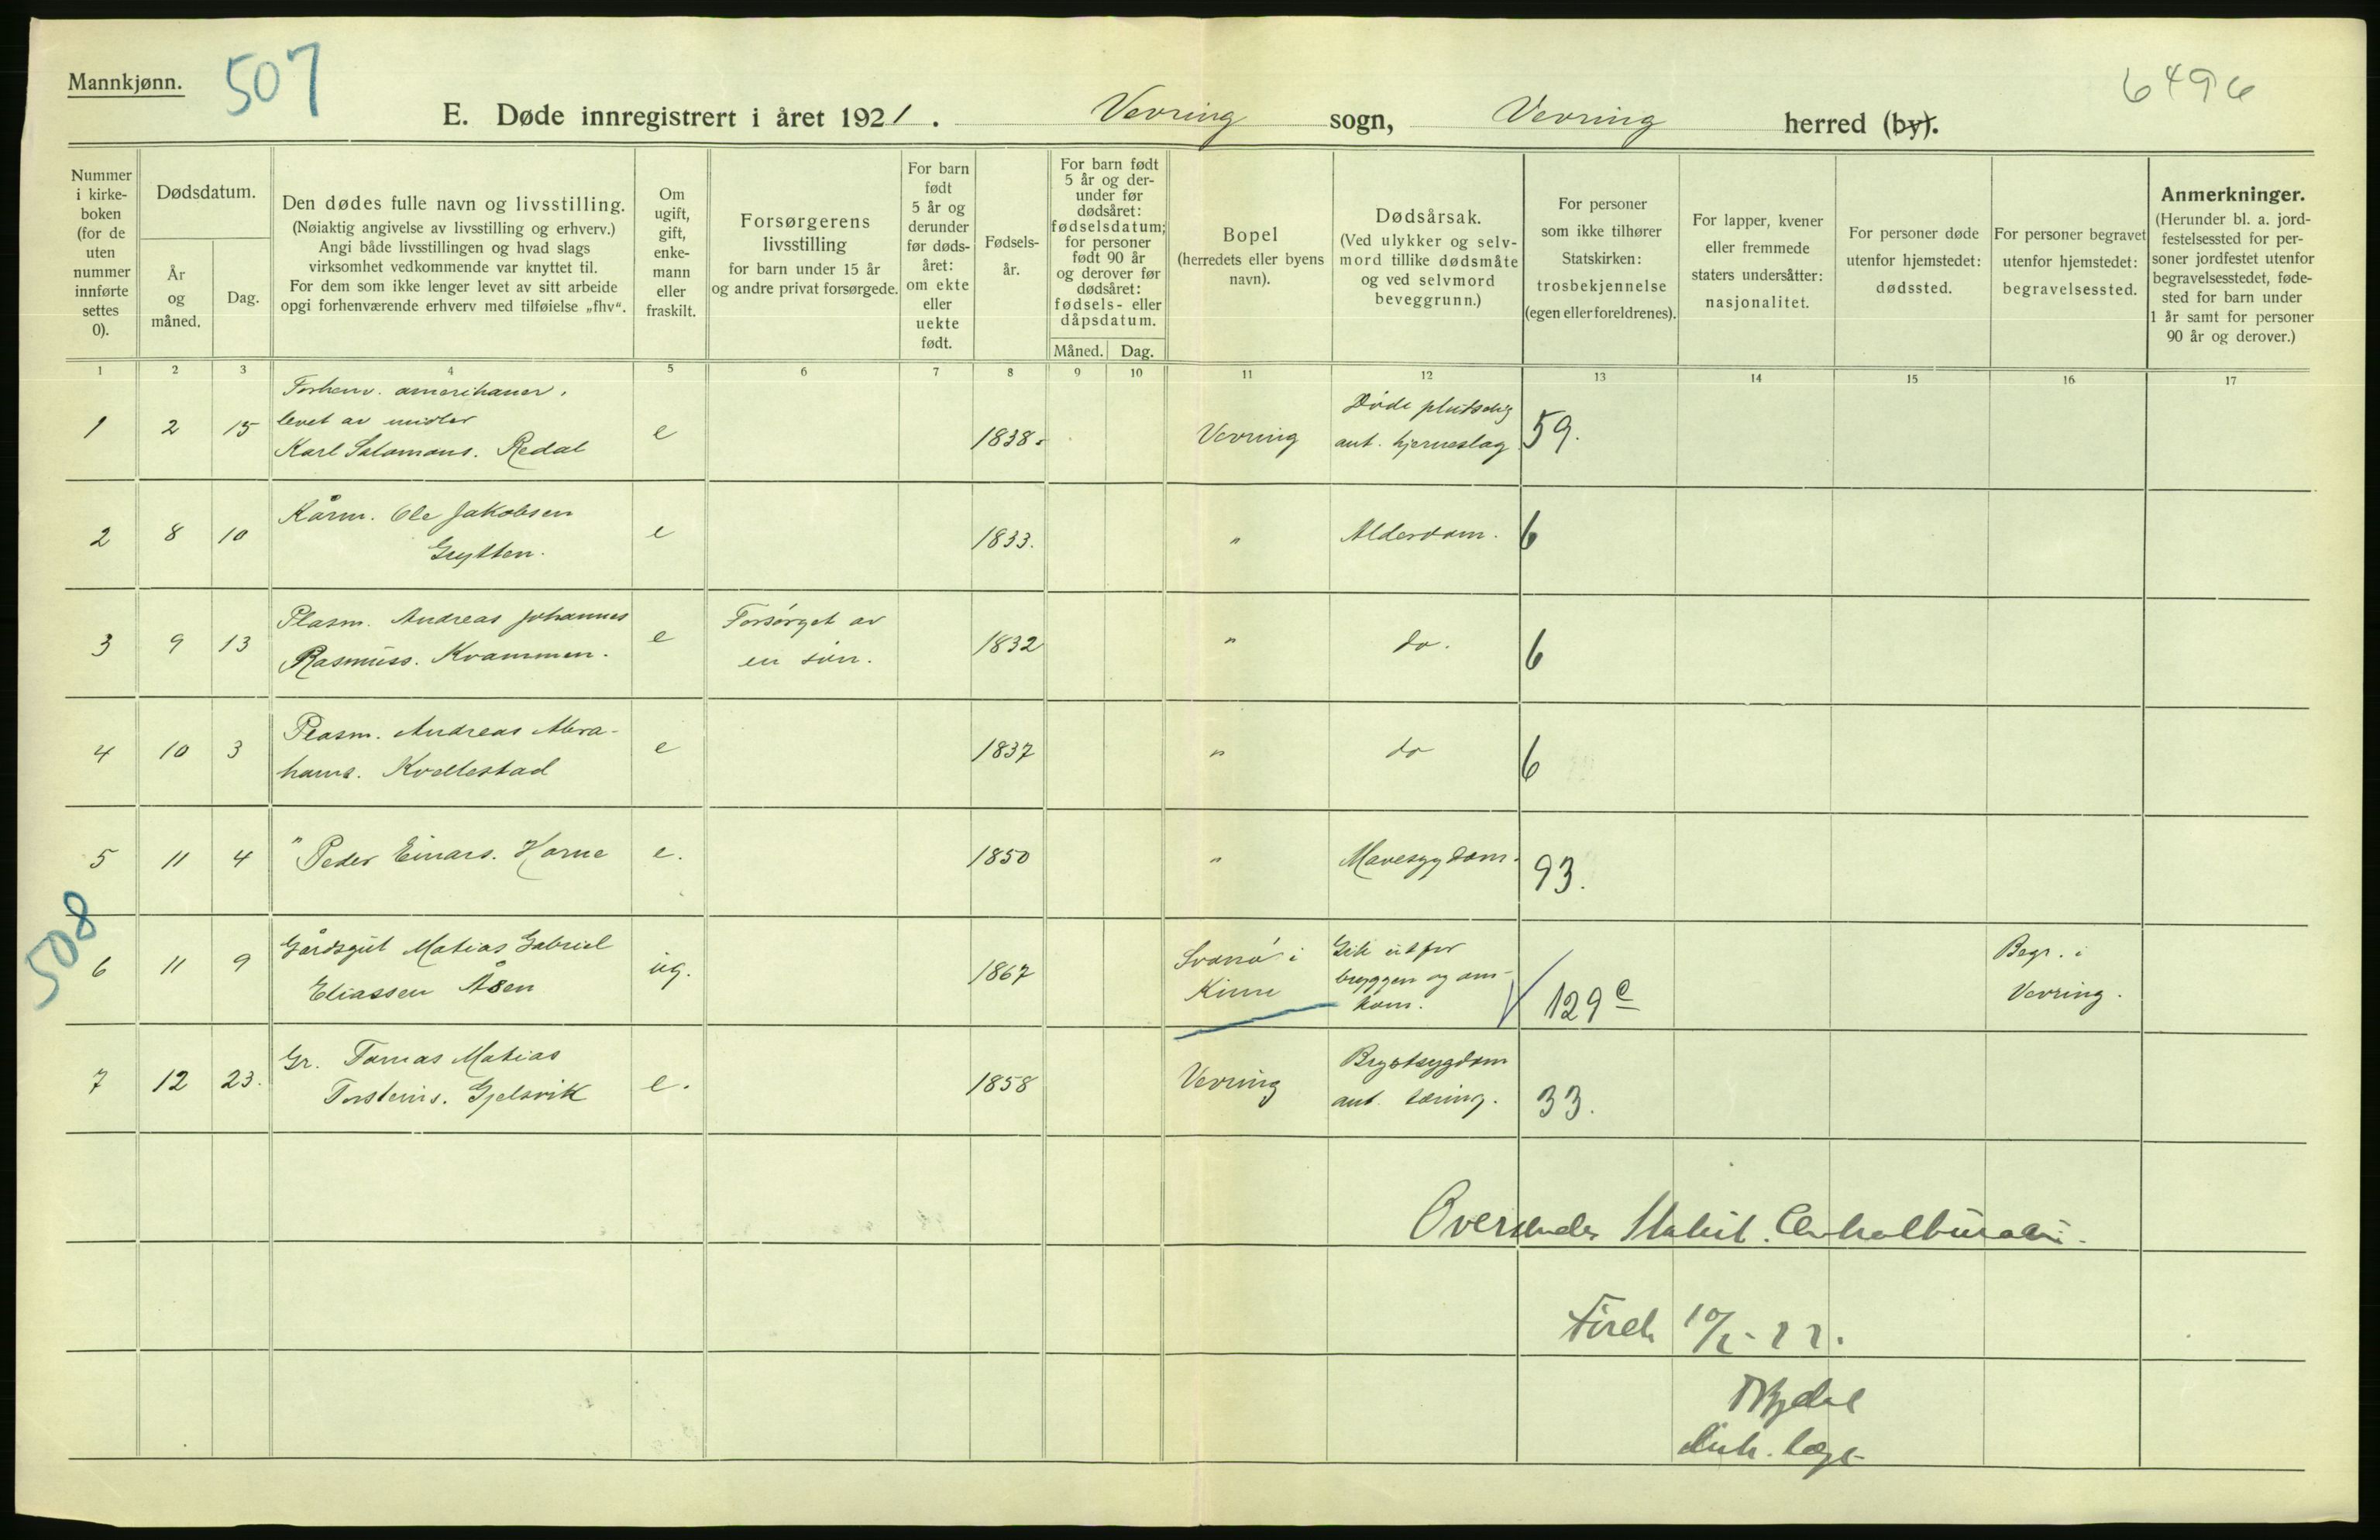 Mannkjønn.
507
6496
E. Døde innregistrert i året 1921. Vevring sogn, Vevring herred (by).
Nummer i kirke-boken (for de uten nummer innførte settes 0).
Dødsdatum.
År og måned.
Dag.
Den dødes fulle navn og livsstilling.
(Nøiaktig angivelse av livsstilling og erhverv.)
Angi både livsstillingen og hvad slags
virksomhet vedkommende var knyttet til.
For dem som ikke lenger levet av sitt arbeide
opgi forhenværende erhverv med tilføielse „fhv“.
Om ugift, gift, enke-mann eller fraskilt.
Forsørgerens
livsstilling
for barn under 15 år
og andre privat forsørgede.
For barn født 5 år og derunder før døds-året: om ekte eller uekte født.
Fødsels-år.
For barn født 5 år og der-under før dødsåret: fødselsdatum; for personer født 90 år og derover før dødsåret: fødsels- eller dåpsdatum.
Måned.
Dag.
Bopel
(herredets eller byens
navn).
Dødsårsak.
(Ved ulykker og selv-
mord tillike dødsmåte
og ved selvmord
beveggrunn.)
For personer
som ikke tilhører
Statskirken:
trosbekjennelse
(egen eller foreldrenes).
For lapper, kvener
eller fremmede
staters undersåtter:
nasjonalitet.
For personer døde
utenfor hjemstedet:
dødssted.
For personer begravet
utenfor hjemstedet:
begravelsessted.
Anmerkninger.
(Herunder bl. a. jord-
festelsessted for per-
soner jordfestet utenfor
begravelsesstedet, føde-
sted for barn under
1 år samt for personer
90 år og derover.)
1 2 3 4 5 6 7 8 9 10 11 12 13 14 15 16 17
Forhenv. amerikaner,
levet av midler
1 2 15 Karl Salamons. Redal e 1838. Vevring
Døde plutselig
ant. hjerneslag 59.
2 8 10 Kårm. Ole Jakobsen
Grytten. e 1833. " Alderdom. 6
3 9 13 Plasm. Andreas Johannes
Rasmuss. Kvammen. e
Forsørget av
en søn. 1832 " do. 6
4 10 3 Plasm. Andreas Abra-
hams. Kvellestad e 1837 " do 6
5 11 4 " Peder Einars. Horne e. 1850 " Mavesygdom. 93.
508
6 11 9 Gårdsgut Matias Gabriel
Eliassen Åsen ug. 1867
Svanø i
Kinn
Gik utfor
bryggen og om-
kom. 129 c
Begr. i
Vevring.
7 12 23. Gr. Tomas Matias
Torsteins. Gjelsvik e. 1858 Vevring
Brystsygdom
ant. tæring. 33.
Oversendes Statist. Centralbureau.
Førde 10/2-22.